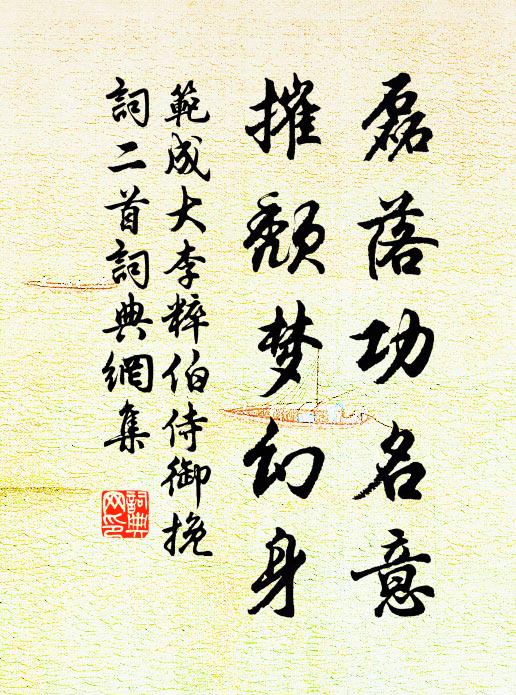 磊落功名意
摧颓梦幻身
範成大李粹伯侍御挽
詞二首詞典網集
詞典
网印